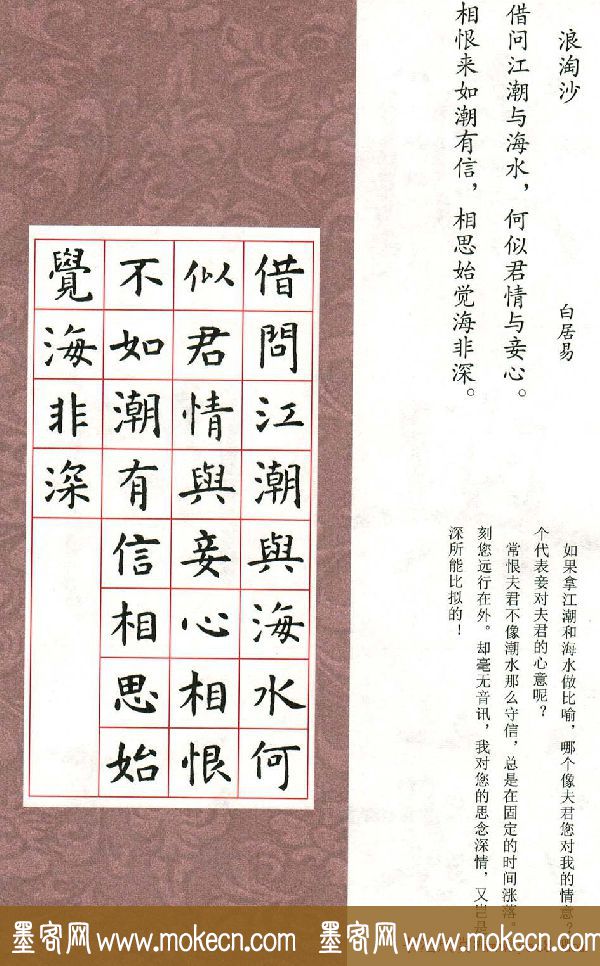 浪淘沙
白居易
借问江潮与海水，何似君情与妾心。
相恨来如潮有信，相思始觉海非深。
如果拿江潮和海水做比喻，哪个像夫君您对我的情意？
个代表妾对夫君的心意呢？
常恨夫君不像潮水那么守信，总是在固定的时间涨落。
刻您远行在外。却毫无音讯，我对您的思念深情，又岂是
深所能比拟的！
借問江潮與海水何
似君情與妾心相恨
不如潮有信相思始
覺海非深
墨客网 www.mokecn.com 墨客网 www.mokecn.com